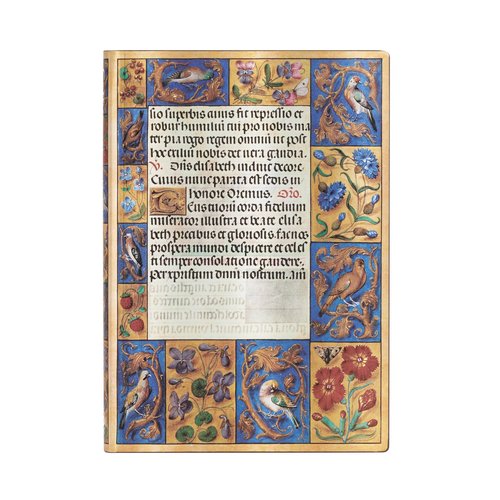 sio superbis auus fit repressio et
robur humilui tui pro nobis ma
ter pia rego regem omniū ne post
hec exilui nobis det uera gaudia.
V. Diis elisabeth induit decore.
Cuius nunc parata est sedis in
honore Oremus. Oro.
Tuorum corda fidelium
miserator illustra et beate elisa
beth precibus et gloriosis fac nos
prospera mundi despicere et celes
ti semper consolatione gaudere.
per xpistum dnm nostrum. am